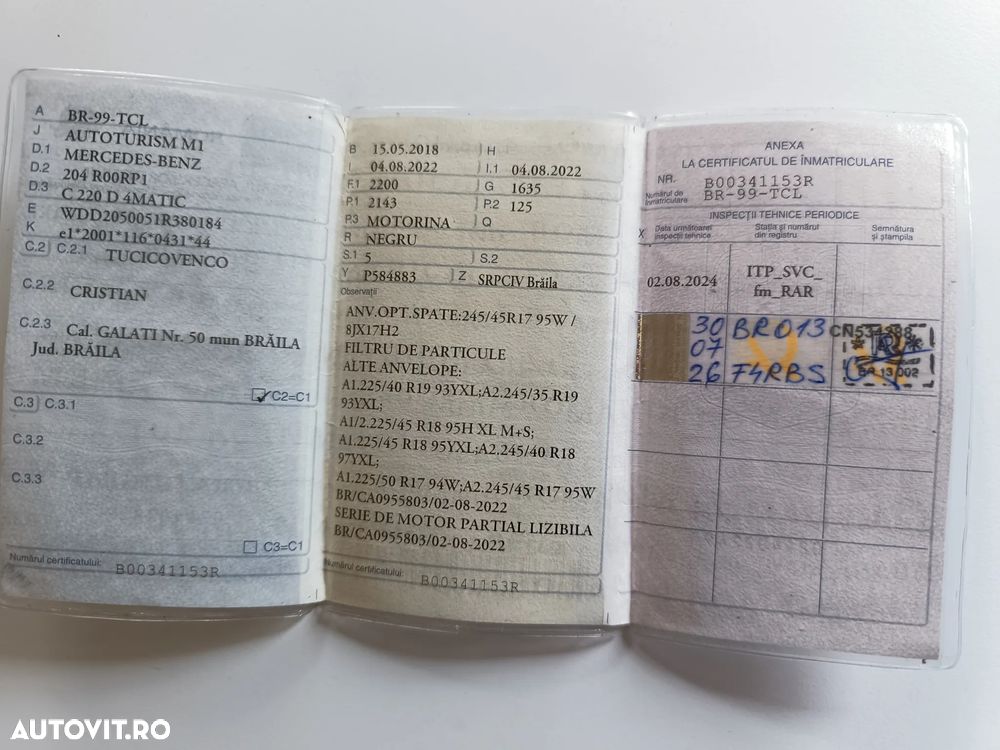 A BR-99-TCL
J AUTOTURISM M1
D.1 MERCEDES-BENZ
D.2 204 R00RP1
D.3 C 220 D 4MATIC
E WDD2050051R380184
K e1*2001*116*0431*44
C.2 C.2.1 TUCICOVENCO
C.2.2 CRISTIAN
C.2.3 Cal. GALATI Nr. 50 mun BRĂILA
Jud. BRĂILA
C2=C1
C.3 C.3.1
C.3.2
C.3.3
C3=C1
Numărul certificatului: B00341153R
B 15.05.2018 H
I 04.08.2022 I.1 04.08.2022
F.1 2200 G 1635
P.1 2143 P.2 125
P.3 MOTORINA Q
R NEGRU
S.1 5 S.2
Y P584883 Z SRPCIV Brăila
Observații
ANV.OPT.SPATE:245/45R17 95W /
8JX17H2
FILTRU DE PARTICULE
ALTE ANVELOPE:
A1.225/40 R19 93YXL;A2.245/35 R19
93YXL;
A1/2.225/45 R18 95H XL M+S;
A1.225/45 R18 95YXL;A2.245/40 R18
97YXL;
A1.225/50 R17 94W;A2.245/45 R17 95W
BR/CA0955803/02-08-2022
SERIE DE MOTOR PARTIAL LIZIBILA
BR/CA0955803/02-08-2022
Numărul certificatului: B00341153R
ANEXA
LA CERTIFICATUL DE ÎNMATRICULARE
NR. B00341153R
Numărul de înmatriculare BR-99-TCL
INSPECȚII TEHNICE PERIODICE
X Data următoarei inspecții tehnice Stația și numărul din registru Semnătura și ștampila
02.08.2024 ITP_SVC_
fm_RAR
30 BR013
07
26 F4RBS
BR 13 002
AUTOVIT.RO